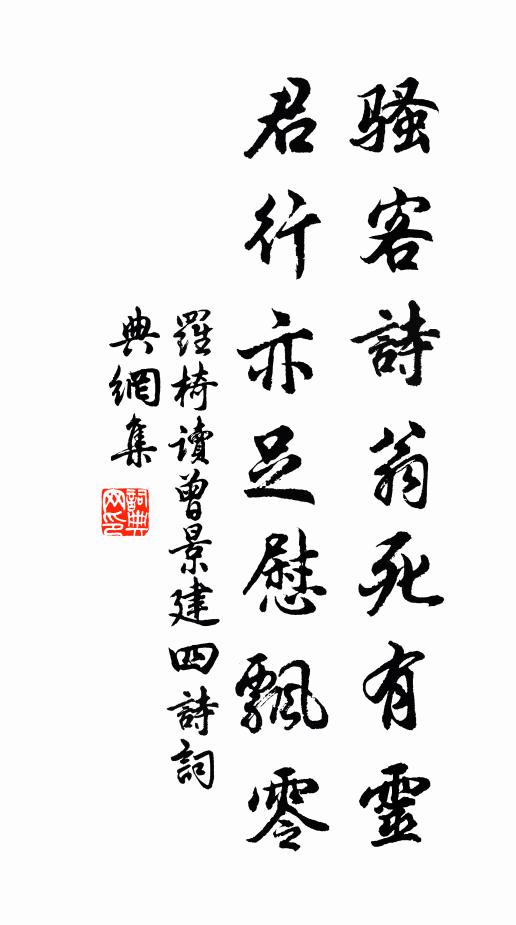 騷客詩翁死有靈
君行亦足慰飄零
羅椅讀曾景建四詩詞
典網集
詞典
网印